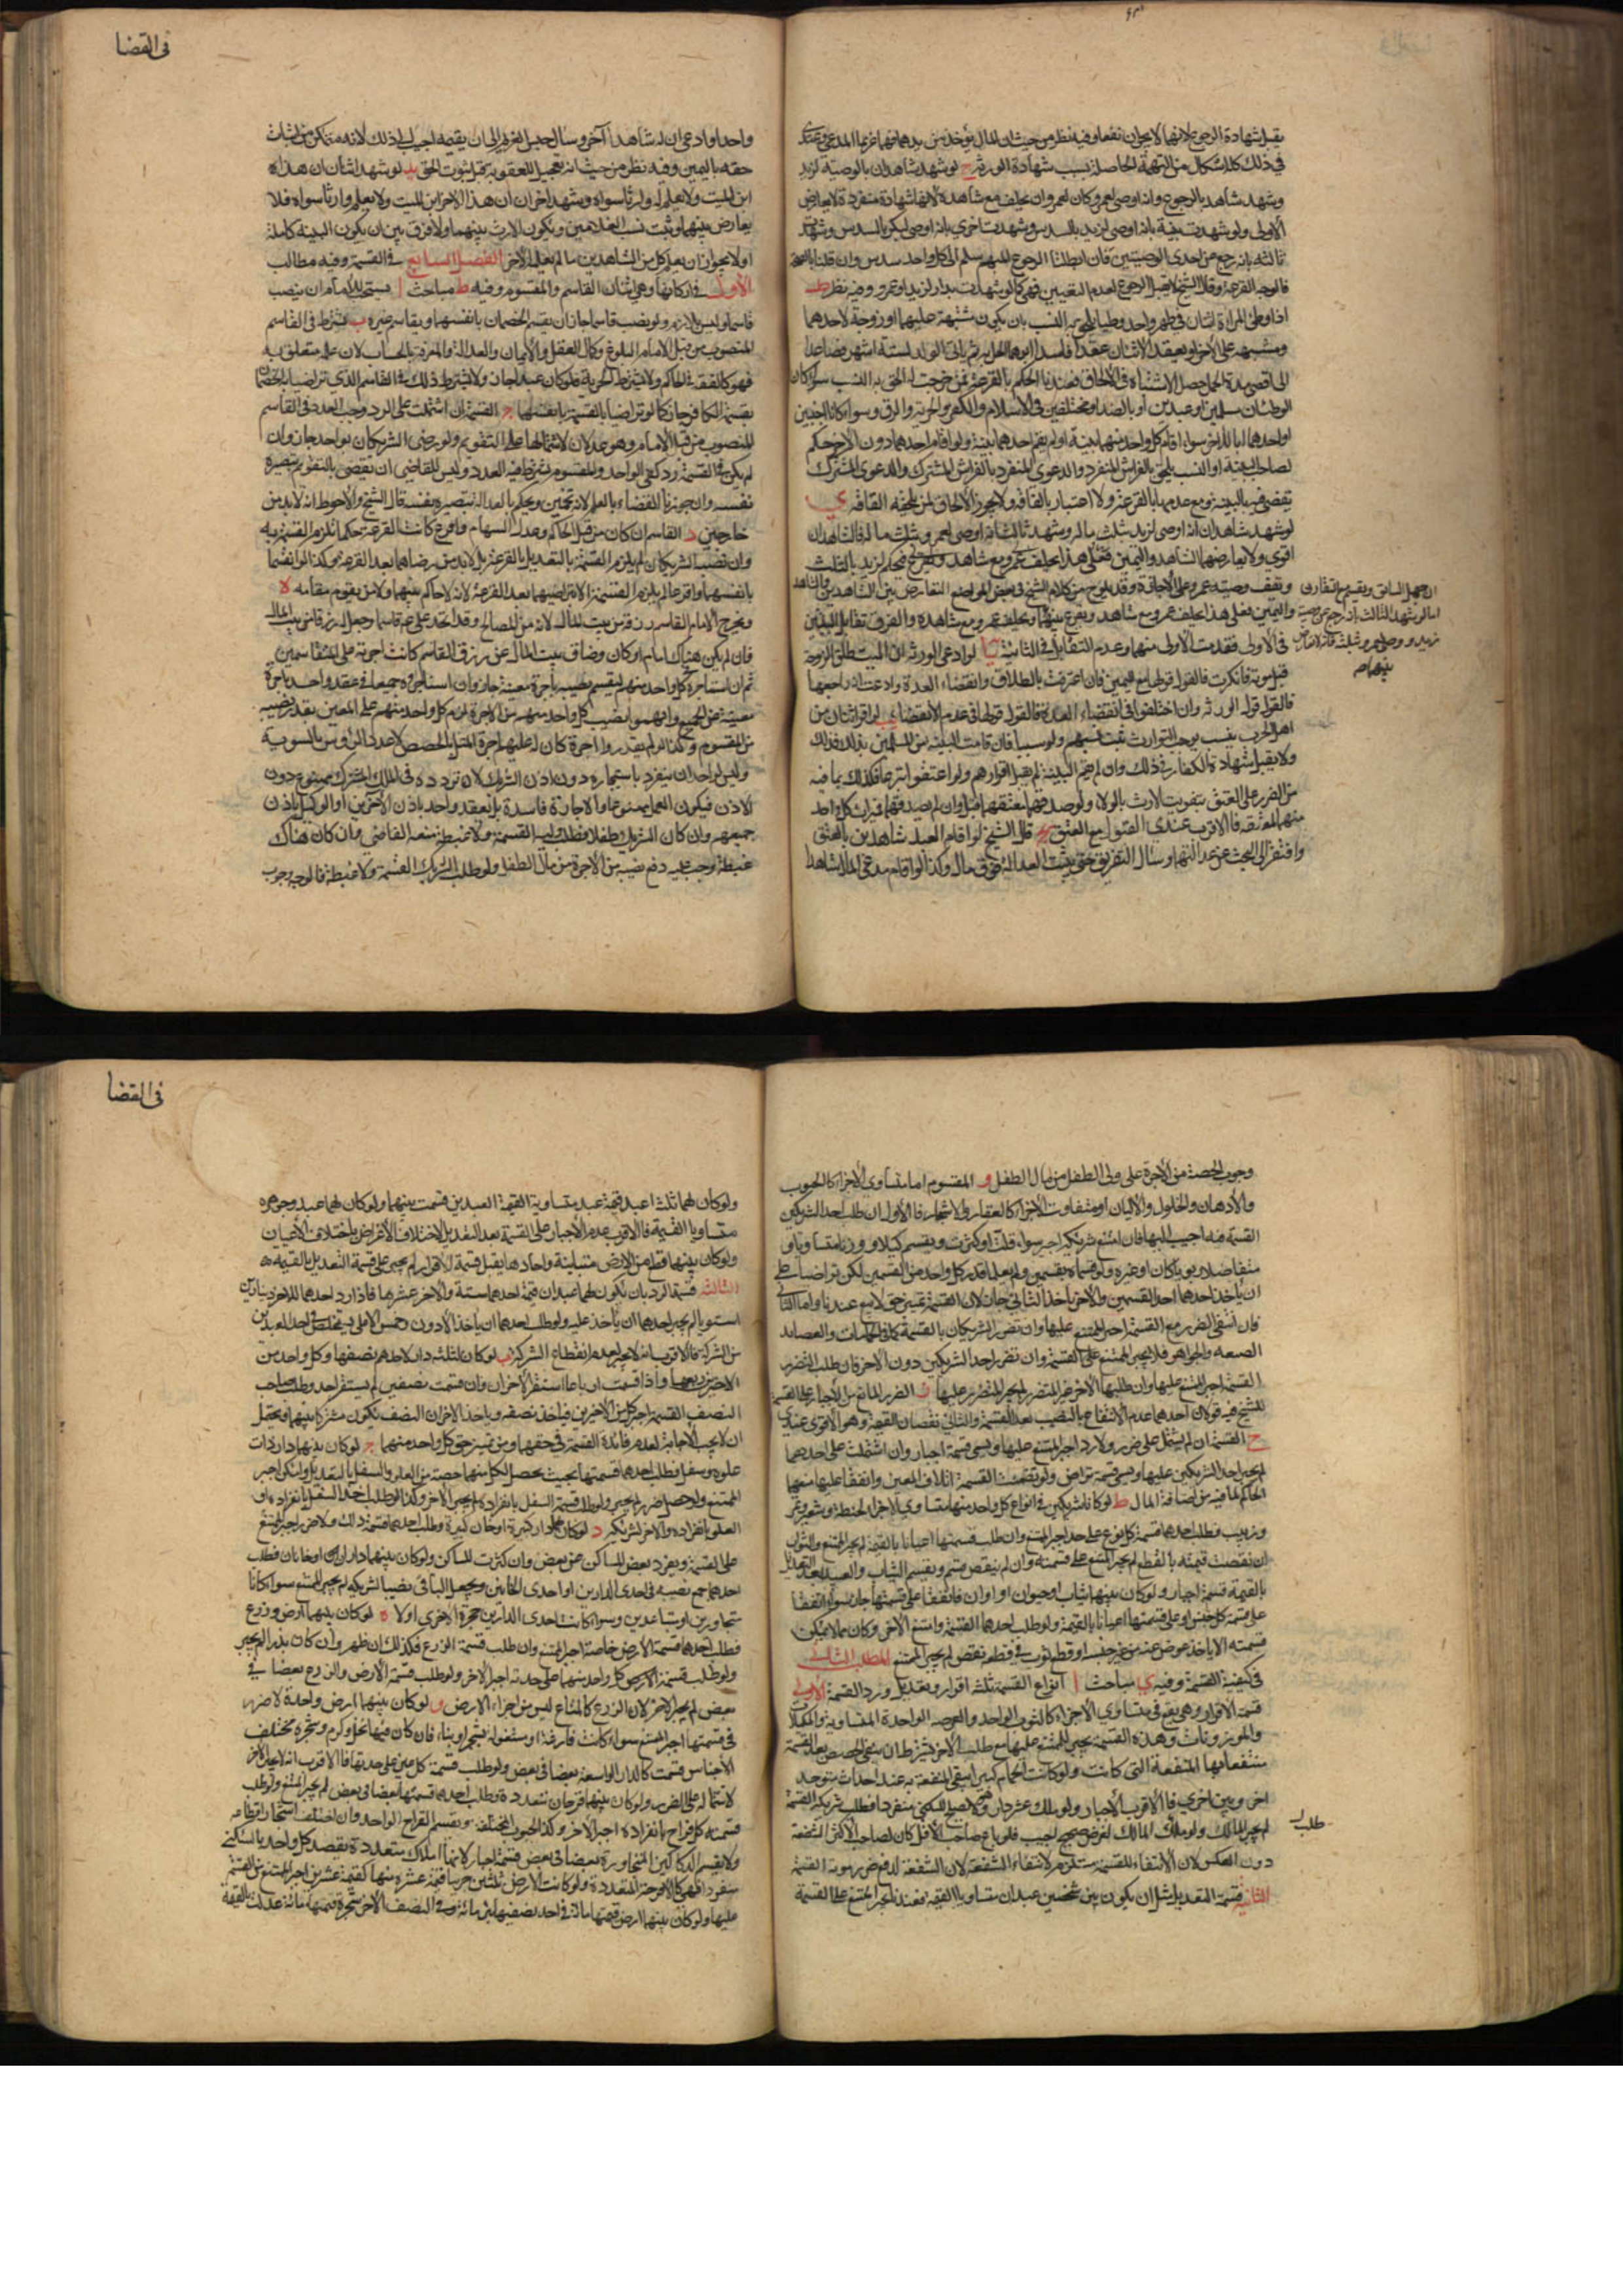 يقبل شهادة الرجوع لانهما لا يجران نفعا وفيه نظر من حيث ان المال يؤخذ من يدهما فهما غريما المدعي وعندي
في ذلك كله اشكال من التهمة الحاصلة بسبب شهادة الورثة ح لو شهد شاهدان بالوصية لزيد
وشهد شاهد بالرجوع وانه اوصى لعمرو كان لعمرو ان يحلف مع شاهده لانها شهادة منفردة لا يعارض
الاولى ولو شهدت بينة بانه اوصى لزيد بالسدس وشهدت اخرى بانه اوصى لبكر بالسدس وشهدت
ثالثة بانه رجع عن احدى الوصيتين فان ابطلنا الرجوع المبهم سلم الى كل واحد سدس وان قلنا بالصحة
فالوجه القرعة وقال الشيخ لا يقبل الرجوع لعدم التعيين فهي كما لو شهدت بدار لزيد او عمرو وفيه نظر ط
اذا وطئ المراة اثنان في طهر واحد وطيا يلحق به النسب بان يكون شبهة عليهما او زوجة لاحدهما
ومشتبهة على الاخر او يعقد الاثنان عقدا فاسدا ثم تاتي بالولد لستة اشهر فصاعدا
الى اقصى مدة الحمل حصل الاشتباه في الالحاق فعندنا الحكم بالقرعة فمن خرجت له الحق به النسب سواء كان
الوطئان مسلمين او عبدين او بالضد او مختلفين في الاسلام والكفر والحرية والرق وسواء كانا اجنبيين
او احدهما ابا للاخر سواء اقام كل واحد منهما بينة او لم يقم احدهما بينة ولو اقام احدهما دون الاخر حكم
لصاحب البينة او النسب يلحق بالفراش المنفرد والدعوى المنفردة بالفراش المشترك والدعوى المشترك
يقضى فيه بالبينة ومع عدمها بالقرعة ولا اعتبار بالقافة ولا يجوز الالحاق لمن يلحقه القافة ى
لو شهد شاهدان انه اوصى لزيد بثلث ماله وشهد ثالث انه اوصى لعمرو بثلث ماله فالشاهدان
اقوى ولا يعارضهما الشاهد واليمين فعلى هذا يحلف عمرو مع شاهده ويحكم لزيد بالثلث
ويقف وصية عمرو على الاجازة وقد يلوح من كلام الشيخ في بعض المواضع التعارض بين الشاهدين والشاهد
واليمين فعلى هذا يحلف عمرو مع شاهده ويقرع بينهما والفرق تقابل البينتين
في الاولى فقدمت الاولى منهما وعدم التقابل في الثانية يا لو ادعى الورثة ان الميت طلق الزوجة
قبل موته فانكرت فالقول قولها مع اليمين فان اعترفت بالطلاق وانقضاء العدة وادعت انه راجعها
فالقول قول الورثة وان اختلفوا في انقضاء العدة فالقول قولها في عدم الانقضاء يب لو اقر اثنان من
اهل الحرب بنسب يوجب التوارث ثبت نسبهم ولو سبيا فان قامت البينة من المسلمين بذلك فكذلك
ولا يقبل شهادة الكفار في ذلك وان لم تقم البينة لم يقبل اقرارهم ولو اعتقوا لم ترثا فكذلك لما فيه
من الضرر على المعتق بتفويت الارث بالولاء ولو صدقهما معتقهما قبل وان لم يصدقهما فميراث كل واحد
منهما لمعتقه فالاقرب عندي القبول مع العتق يج قال الشيخ لو اقام العبد شاهدين بالعتق
وافتقر الى البحث عن عدالتهما وسال التفريق حتى يثبت العدالة وكذا لو اقام مدعي المال شاهدا
اما لو شهد الثالث انه رجع عن وصية
زيد ووصى لعمرو بثلثه فانه لا تعارض
بينهما صح
في القضا
واحدا وادعى ان له شاهدا آخر وسال حبس الغريم الى ان يقيمه اجيب الى ذلك لانه متمكن من اثبات
حقه باليمين وفيه نظر من حيث انه تعجيل للعقوبة قبل ثبوت الحق يد لو شهد اثنان ان هذا
ابن الميت ولا يعلم له وارثا سواه وشهد اخران ان هذا الاخر ابن الميت ولا يعلم وارثا سواه فلا
يعارض بينهما وثبت نسب الغلامين ويكون الارث بينهما ولا فرق بين ان يكون البينة كاملة
او لا يجوز ان يعلم كل من الشاهدين ما لم يعلم الاخر الفصل السابع في القسمة وفيه مطالب
الاول في اركانها وهي اثنان القاسم والمقسوم وفيه ط مباحث ا يستحب للامام ان ينصب
قاسما وليس بلازم ولو نصب قاسما جاز ان يقسم الخصمان بانفسهما ويقاسم غيره ب يشترط في القاسم
المنصوب من قبل الامام البلوغ وكمال العقل والايمان والعدالة والمعرفة بالحساب لان عمله متعلق به
فهو كالفقه في الحاكم ولا يشترط الحرية فلو كان عبدا جاز ولا يشترط ذلك في القاسم الذي تراضيا به الخصمان
بقسمة الكافر جاز كما لو تراضيا بالقسمة بانفسهما ج القسمة ان اشتملت على الرد وجب العدد في القاسم
المنصوب من قبل الامام وهو عدلان لاشتمالها على التقويم ولو رضي الشريكان بواحد جاز وان
لم يكن في القسمة رد كفى الواحد والمقسوم يشترط فيه العدد وليس للقاضي ان يقضي بالتقويم ببصيرة
نفسه وان جوزنا القضاء بالعلم لانه تخمين ويحكم بالعدالة ببصيرة نفسه قال الشيخ والاحوط انه لا بد من
خارجين د القاسم ان كان من قبل الحاكم وعدل السهام واقرع كانت القرعة حكما تلزم القسمة به
وان نصبه الشريكان لم يلزم القسمة بالتعديل بالقرعة بل لا بد من رضاهما بعد القرعة وكذا لو اقتسما
بانفسهما واقرعا لم يلزم القسمة الا بتراضيهما بعد القرعة لانه لا حاكم بينهما ولا من يقوم مقامه ه
ويخرج الامام للقاسم رزقه من بيت المال لانه من المصالح وقد اتخذ علي ع قاسما وجعل له رزقا من بيت المال
فان لم يكن هناك امام او كان وضاق بيت المال عن رزق القاسم كانت اجرته على المتقاسمين
ثم ان استاجره كل واحد منهم ليقسم نصيبه باجرة معينة جاز وان استاجروه جميعا في عقد واحد باجرة
معينة عن الجميع وابهموا نصيب كل واحد منهم من الاجرة لزم كل واحد منهم على المعين بقدر نصيبه
من المقسوم وكذا لو لم يقدروا اجرة كان له عليهم اجرة المثل بالحصص لا عدد الرؤس بالسوية
وليس لواحد ان ينفرد باستيجاره دون اذن الشريك لان تردده في الملك المشترك ممنوع دون
الاذن فيكون العمل ممنوعا والاجارة فاسدة بل يعقد واحد باذن الاخرين او الوكيل باذن
جميعهم وان كان الشريك طفلا وطلب وليه القسمة ولا غبطة منعه القاضي وان كان هناك
غبطة وجب عليه دفع نصيبه من الاجرة من مال الطفل ولو طلب الشريك القسمة ولا غبطة فالوجه وجوب
وجوب الحصة من الاجرة على ولي الطفل من مال الطفل و المقسوم اما متساوي الاجزاء كالحبوب
والادهان والخلول والالبان او متفاوت الاجزاء كالعقار والاشجار فالاول ان طلب احد الشريكين
القسمة فيه اجيب اليها فان امتنع شريكه اجبر سواء قلت او كثرت ويقسم كيلا ووزنا متساويا و
متفاضلا ربويا كان او غيره ولو قسماه بقسمين ولم يعلما قدر كل واحد من القسمين لكن تراضيا على
ان ياخذ احدهما احد القسمين والاخر ياخذ الثاني جاز لان القسمة تميز حق لا بيع عندنا واما الثاني
فان انتفى الضرر مع القسمة اجبر الممتنع عليها وان تضرر الشريكان بالقسمة كما في الحمامات والعضائد
الضيقة والجواهر فلا يجبر الممتنع على القسمة وان تضرر احد الشريكين دون الاخر فان طلب المتضرر
القسمة اجبر الممتنع عليها وان طلبها الاخر غير المتضرر لم يجبر المتضرر عليها ز الضرر المانع من الاجبار على القسمة
للشيخ فيه قولان احدهما عدم الانتفاع بالنصيب بعد القسمة والثاني نقصان القيمة وهو الاقوى عندي
ح القسمة ان لم يشتمل على ضرر ولا رد اجبر الممتنع عليها ويسمى قسمة اجبار وان اشتملت على احدهما
لم يجبر احد الشريكين عليها ويسمى قسمة تراض ولو تضمنت القسمة اتلاف العين واتفقا عليها منعهما
الحاكم لما فيه من اضاعة المال ط لو كانا شريكين في انواع كل واحد منها متساوي الاجزاء كحنطة وشعير وتمر
وزبيب فطلب احدهما قسمة كل نوع على حدته اجبر الممتنع وان طلب قسمتها اعيانا بالقيمة لم يجبر الممتنع والثوب
ان نقصت قيمته بالقطع لم يجبر الممتنع على قسمته وان لم ينقص قسم ويقسم الثياب والعبيد بعد التعديل
بالقيمة قسمة اجبار ولو كان بينهما ثياب او حيوان او اوان فاتفقا على قسمتها جاز سواء اتفقا
على قسمة كل جنس او على قسمتها اعيانا بالقيمة ولو طلب احدهما القسمة وامتنع الاخر وكان مما لا يمكن
قسمته الا باخذ عوض عنه من غير جنسه او قطع ثوب في قطعه نقص لم يجبر الممتنع المطلب الثاني
في كيفية القسمة وفيه ى مباحث ا انواع القسمة ثلثة افراز وتعديل ورد القسمة الاولى
قسمة الافراز وهي يقع في متساوي الاجزاء كالثوب الواحد والعرصة الواحدة المتساوية والمكيلات
والموزونات وهذه القسمة يجبر الممتنع عليها مع طلب الاخر بشرط ان يبقى الحصص بعد القسمة
منتفعا بها المنفعة التي كانت ولو كانت الحمام كبيرا يبقى المنفعة به عند احداث مستوقد
اخر وبئر اخرى فالاقرب الاجبار ولو ملك عشر دار ولا يصلح للسكنى منفردا فطلب شريكه القسمة
لم يجبر المالك ولو طلب المالك لغرض صحيح اجيب فلو باع صاحب الاقل كان لصاحب الاكثر الشفعة
دون العكس لان الانتفاء للقسمة مستلزم لانتفاء الشفعة لان الشفعة لدفع ضرر مؤنة القسمة
الثانية قسمة التعديل مثل ان يكون بين شخصين عبدان متساويا القيمة فعندنا يجبر الممتنع على القسمة
طلب
في القضا
ولو كان لهما ثلث اعبد قيمة عبد متساوية القيمة العبدين قسمت بينهما ولو كان لهما عبد وجوهرة
متساويا القيمة فالاقرب عدم الاجبار على القسمة بعد التعديل لاختلاف الاغراض باختلاف الاعيان
ولو كان بينهما قطع من الارض متباينة واحادها يقبل قسمة الافراز لم يجبر على قسمة التعديل بالقيمة
الثالثة قسمة الرد بان يكون لهما عبدان قيمة احدهما ستة والاخر عشرة فاذا رد احدهما للاخر دينارين
استويا لم يجبر احدهما ان ياخذ عليه ولو طلب احدهما ان ياخذ الادون وخمس الاعلى ليتخلص في احد العبدين
من الشركة فالاقرب انه لا يجبر لعدم انقطاع الشركة ب لو كان لثلثة دار لاحدهم نصفها وكل واحد من
الاخيرين ربعها واذا قسمت ارباعا استضر الاخران وان قسمت نصفين لم يستضر احد وطلب صاحب
النصف القسمة اجبر كل من الاخيرين فياخذ نصفه وياخذ الاخران النصف يكون مشتركا بينهما ويحتمل
ان لا يجب الاجابة لعدم فائدة القسمة في حقهما ومن تميز حق كل واحد منهما ج لو كان بينهما دار ذات
علو وسفل فطلب احدهما قسمتها بحيث يحصل لكل منهما حصة من العلو والسفل بالتعديل وامكن اجبر
الممتنع ولو حصل ضرر لم يجبر ولو طلب قسمة السفل بانفراده لم يجبر الاخر وكذا لو طلب اخذ السفل بانفراده او
العلو بانفراده والاخر لشريكه د لو كان لهما دار كبيرة او خان كبيرة وطلب احدهما قسمة ذلك ولا ضرر اجبر الممتنع
على القسمة ويفرد بعض المساكن عن بعض وان كثرت المساكن ولو كان بينهما داران او خانان فطلب
احدهما جمع نصيبه في احدى الدارين او احدى الخانين ويجعل الباقي نصيبا لشريكه لم يجبر الممتنع سواء كانا
متجاورين او متباعدين وسواء كانت احدى الدارين حجرة الاخرى اولا ه لو كان بينهما ارض وزرع
فطلب احدهما قسمة الارض خاصة اجبر الممتنع وان طلب قسمة الزرع فكذلك ان ظهر وان كان بذرا لم يجبر
ولو طلب قسمة الارض كل واحد منهما على حدته اجبر الاخر ولو طلب قسمة الارض والزرع بعضا في
بعض لم يجبر الاخر لان الزرع كالمتاع ليس من اجزاء الارض و لو كان بينهما ارض واحدة لا ضرر
في قسمتها اجبر الممتنع سواء كانت فارغة او مشغولة بشجر او بناء فان كان فيها نخل وكرم وشجره مختلف
الاجناس قسمت كالدار الواسعة بعضا في بعض ولو طلب قسمة كل عين على حدتها فالاقرب انه لا يجبر الاخر
لاشتماله على الضرر ولو كان بينهما اقرحة متعددة وطلب احدهما قسمتها بعضا في بعض لم يجبر الممتنع ولو طلب
قسمته كل قراح بانفراده اجبر الاخر وكذا الحبوب المختلفة ويقسم القراح الواحد وان اختلف اشجار اقطاعه
ولا يقسم الدكاكين المتجاورة بعضا في بعض قسمة اجبار لانها املاك متعددة يقصد كل واحد بالسكنى
منفردا فهي كالاقرحة المتعددة ولو كانت الارض ثلثين جريبا قيمة عشرة منها كقيمة عشرين اجبر الممتنع من القسمة
عليها ولو كان بينهما ارض قيمتها مائة في احد نصفيها بئر مائة وفي النصف الاخر شجرة قيمتها مائة عدلت بالقيمة